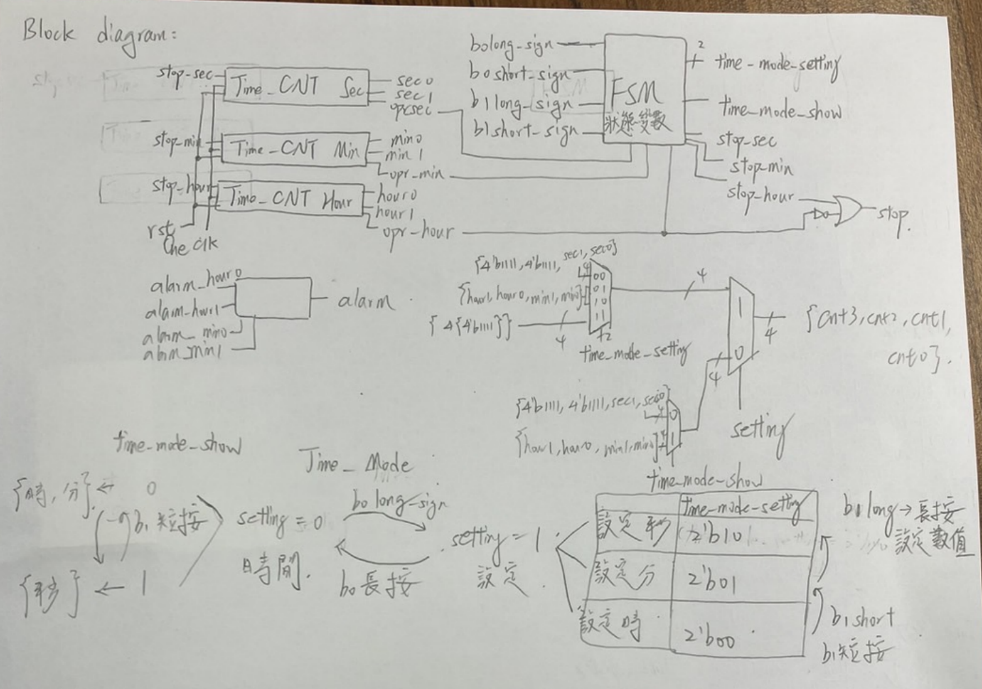 Block diagram:
stop-sec
Time_CNT Sec
sec0
sec1
opr_sec
stop-min
Time_CNT Min
min0
min1
opr_min
stop-hour
Time_CNT Hour
hour0
hour1
opr-hour
rst
One clk
b0long-sign
b0short_sign
b1long_sign
b1short_sign
FSM
狀態變數
2
time-mode-setting
time_mode_show
stop-sec
stop-min
stop-hour
stop.
alarm_hour0
alarm_hour1
alarm_min0
alarm_min1
alarm
{4'b1111,4'b1111,sec1,sec0}
{hour1,hour0,min1,min0}
{4{4'b1111}}
4
00
01
10
11
2
time_mode_setting
4
1
0
4
4
{cnt3,cnt2,cnt1,
cnt0}.
setting
{4'b1111,4'b1111,sec1,sec0}
{hour1,hour0,min1,min0}
0
1
time_mode-show
time-mode-show
{時,分} ← 0
b1短按
{秒} ← 1
Time_Mode
setting=0
時間.
b0 long-sign
b0長按
setting=1
設定
time-mode-setting
設定秒 2'b10
設定分 2'b01
設定時 2'b00
b1long→長按
設定數值
b1short
b1短按